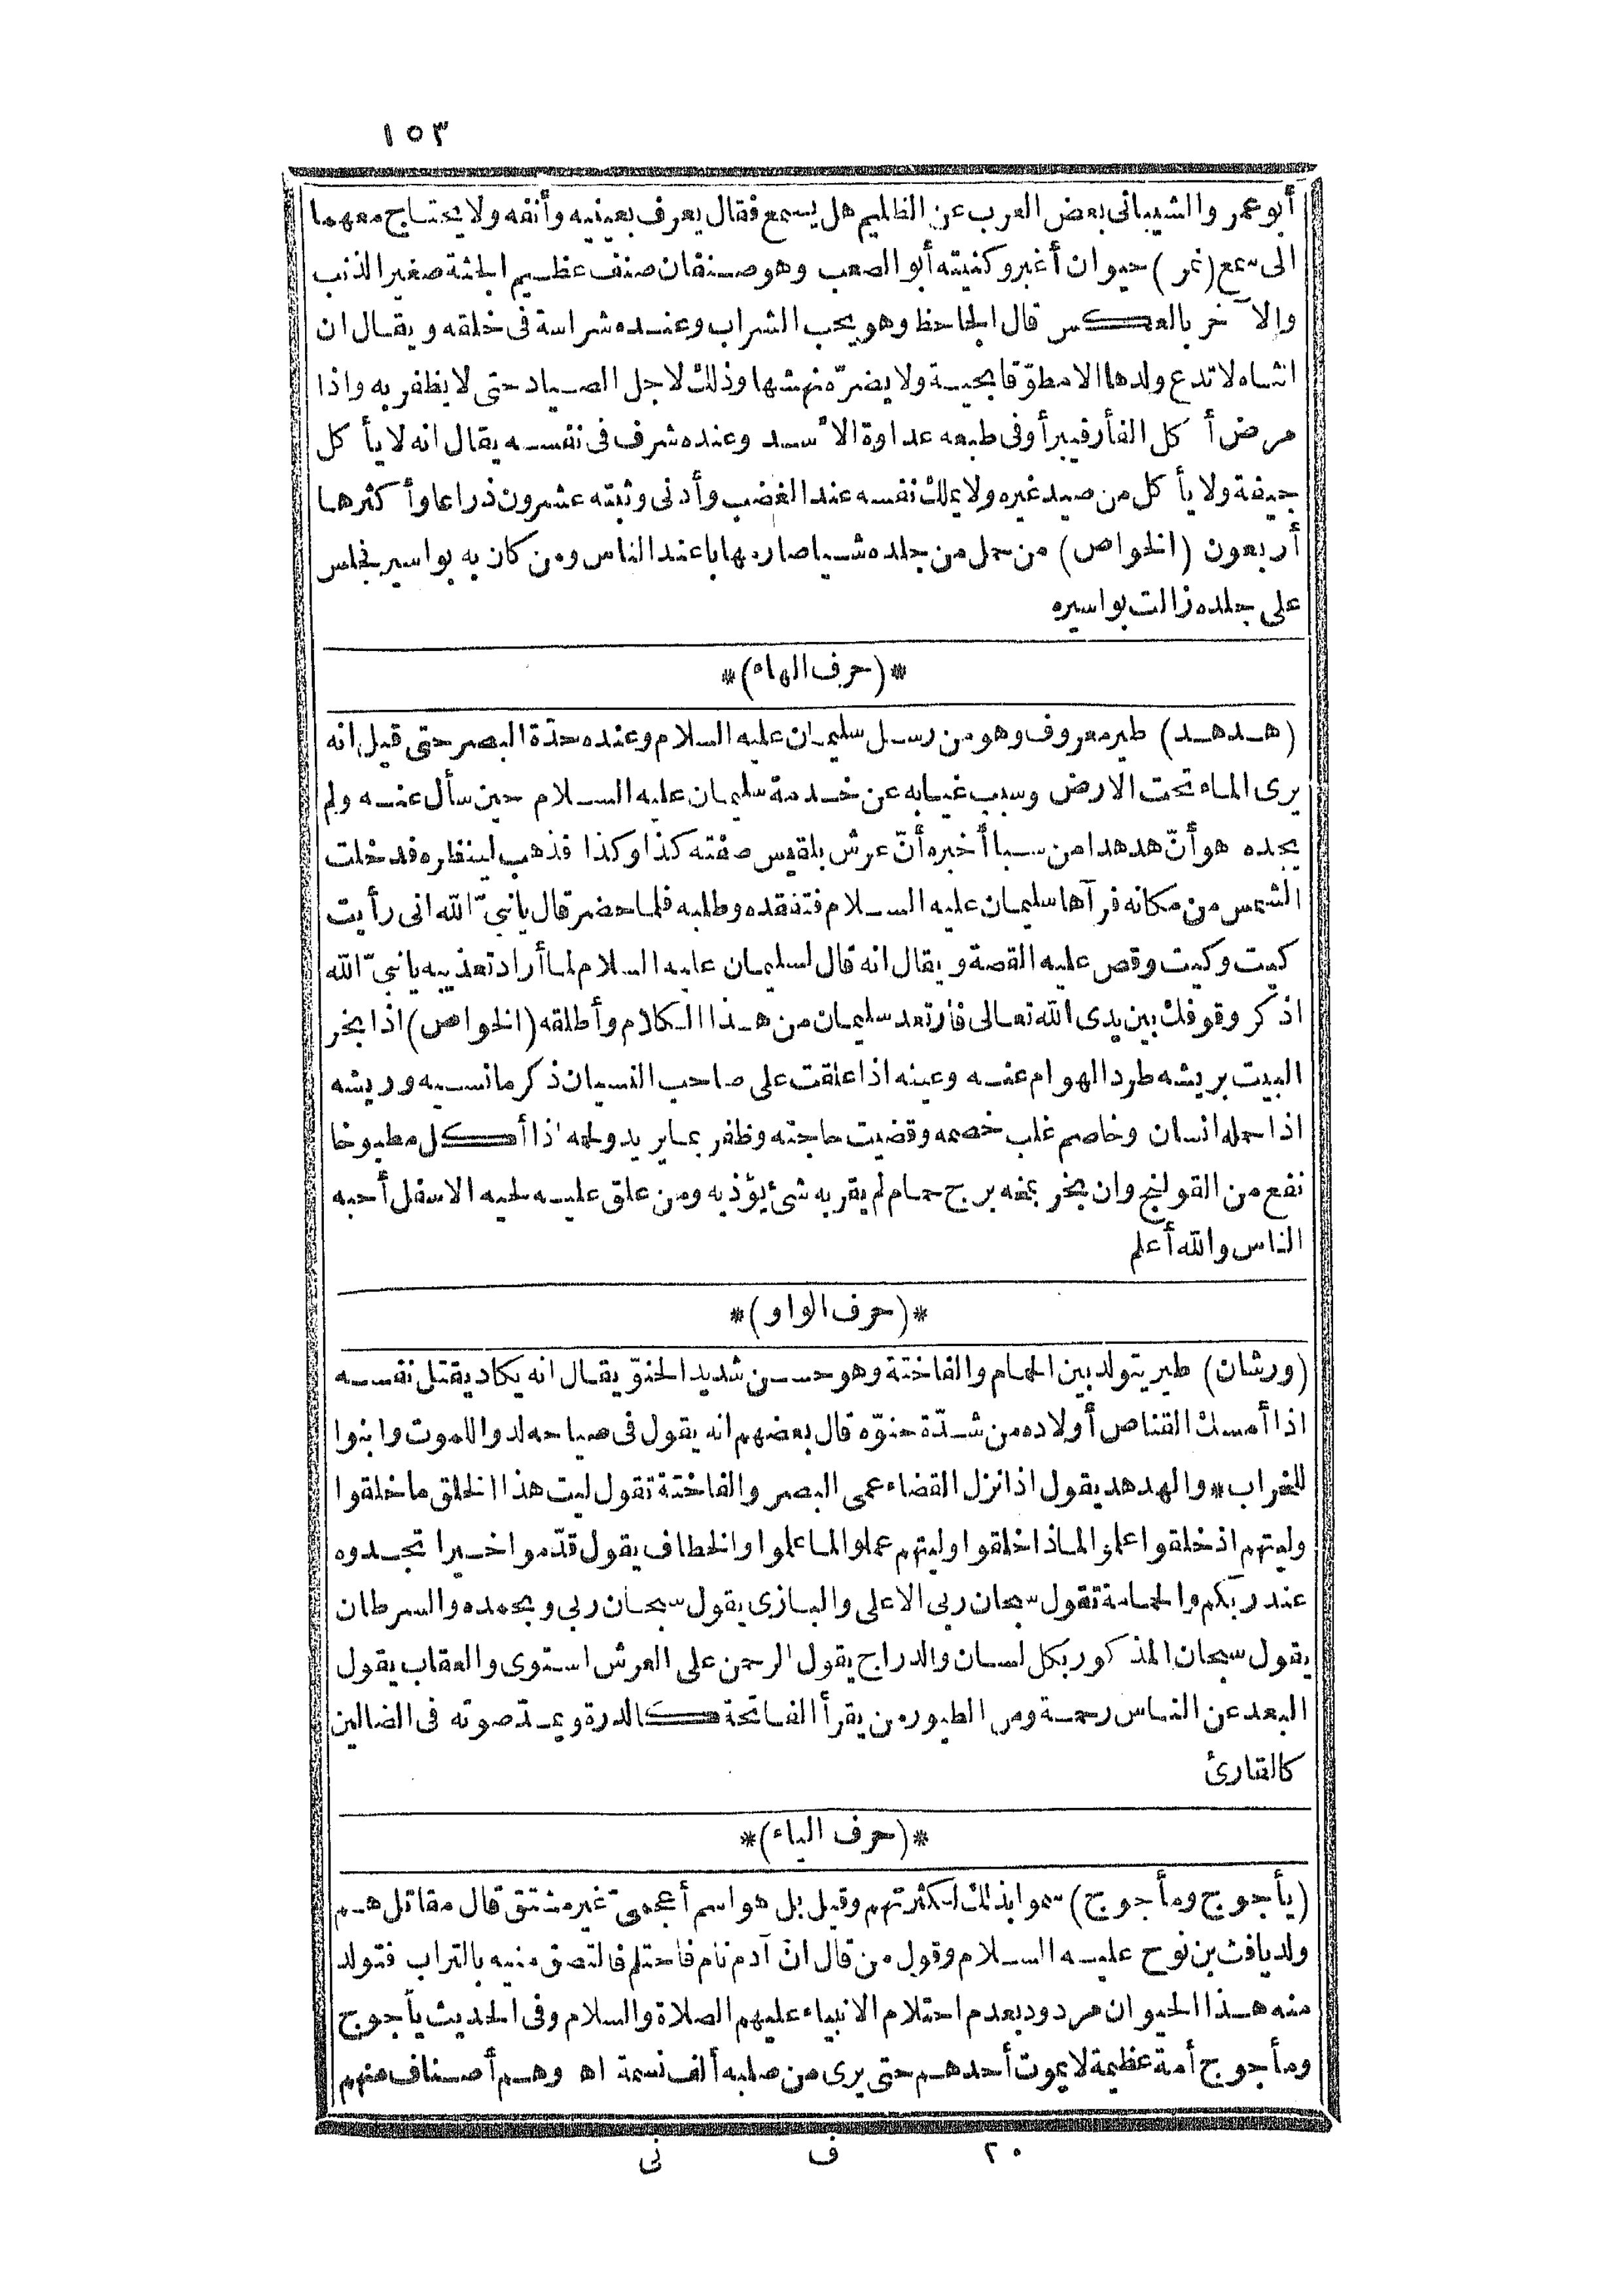 ١٥٣
أبو عمرو الشيبانى بعض العرب عن الظليم هل يسمع فقال يعرف بعينيه وأنفه ولا يحتاج معهما
الى سمع (نمر) حيوان أغبر وكنيته أبو الصعب وهو صنفان صنف عظيم الجثة صغير الذنب
والآخر بالعكس قال الجاحظ وهو يحب الشراب وعنده شراسة فى خلقه ويقال ان
انثاه لا تدع ولدها الا مطوّقا بحية ولا يضرّه نهشها وذلك لاجل الصياد حتى لا يظفر به واذا
مرض أكل الفأر فيبرأ وفى طبعه عداوة الأسد وعنده شرف فى نفسه يقال انه لا يأكل
جيفة ولا يأكل من صيد غيره ولا يملك نفسه عند الغضب وأدنى وثبته عشرون ذراعا وأكثرها
أربعون (الخواص) من حمل من جلده شيا صار مهابا عند الناس ومن كان به بواسير فجلس
على جلده زالت بواسيره
*(حرف الهاء)*
(هدهد) طير معروف وهو من رسل سليمان عليه السلام وعنده حدّة البصر حتى قيل انه
يرى الماء تحت الارض وسبب غيابه عن خدمة سليمان عليه السلام حين سأل عنه ولم
يجده هو أنّ هدهدا من سبا أخبره أنّ عرش بلقيس صفته كذا وكذا فذهب لينظره فدخلت
الشمس من مكانه فرآها سليمان عليه السلام فتفقده وطلبه فلما حضر قال يا نبىّ الله انى رأيت
كيت وكيت وقص عليه القصة ويقال انه قال لسليمان عليه السلام لما أراد تعذيبه يا نبىّ الله
اذكر وقوفك بين يدى الله تعالى فارتعد سليمان من هذا الكلام وأطلقه (الخواص) اذا بخر
البيت بريشه طرد الهوام عنه وعينه اذا علقت على صاحب النسيان ذكر ما نسيه وريشه
اذا حمله انسان وخاصم غلب خصمه وقضيت حاجته وظفر بما يريد ولحمه اذا أكل مطبوخا
نفع من القولنج وان بخر بمخه برج حمام لم يقربه شئ يؤذيه ومن علق عليه لحيه الاسفل أحبه
الناس والله أعلم
*(حرف الواو)*
(ورشان) طير يتولد بين الحمام والفاختة وهو حسن شديد الحنوّ يقال انه يكاد يقتل نفسه
اذا أمسك القناص أولاده من شدّة حنوّه قال بعضهم انه يقول فى صياحه لدوا للموت وابنوا
للخراب * والهدهد يقول اذا نزل القضاء عمى البصر والفاختة تقول ليت هذا الخلق ما خلقوا
وليتهم اذ خلقوا علموا لماذا خلقوا وليتهم عملوا لما علموا والخطاف يقول قدّموا خيرا تجدوه
عند ربكم والحمامة تقول سبحان ربى الاعلى والبازى يقول سبحان ربى وبحمده والسرطان
يقول سبحان المذكور بكل لسان والدراج يقول الرحمن على العرش استوى والعقاب يقول
البعد عن الناس رحمة ومن الطيور من يقرأ الفاتحة كالدرة ويمدّ صوته فى الضالين
كالقارئ
*(حرف الياء)*
(يأجوج ومأجوج) سموا بذلك لكثرتهم وقيل بل هو اسم أعجمىّ غير مشتق قال مقاتل هم
ولد يافث بن نوح عليه السلام وقول من قال انّ آدم نام فاحتلم فالتصق منيه بالتراب فتولد
منه هذا الحيوان مردود بعدم احتلام الانبياء عليهم الصلاة والسلام وفى الحديث يأجوج
ومأجوج أمة عظيمة لا يموت أحدهم حتى يرى من صلبه ألف نسمة اه وهم أصناف منهم
٢٠ ف نى